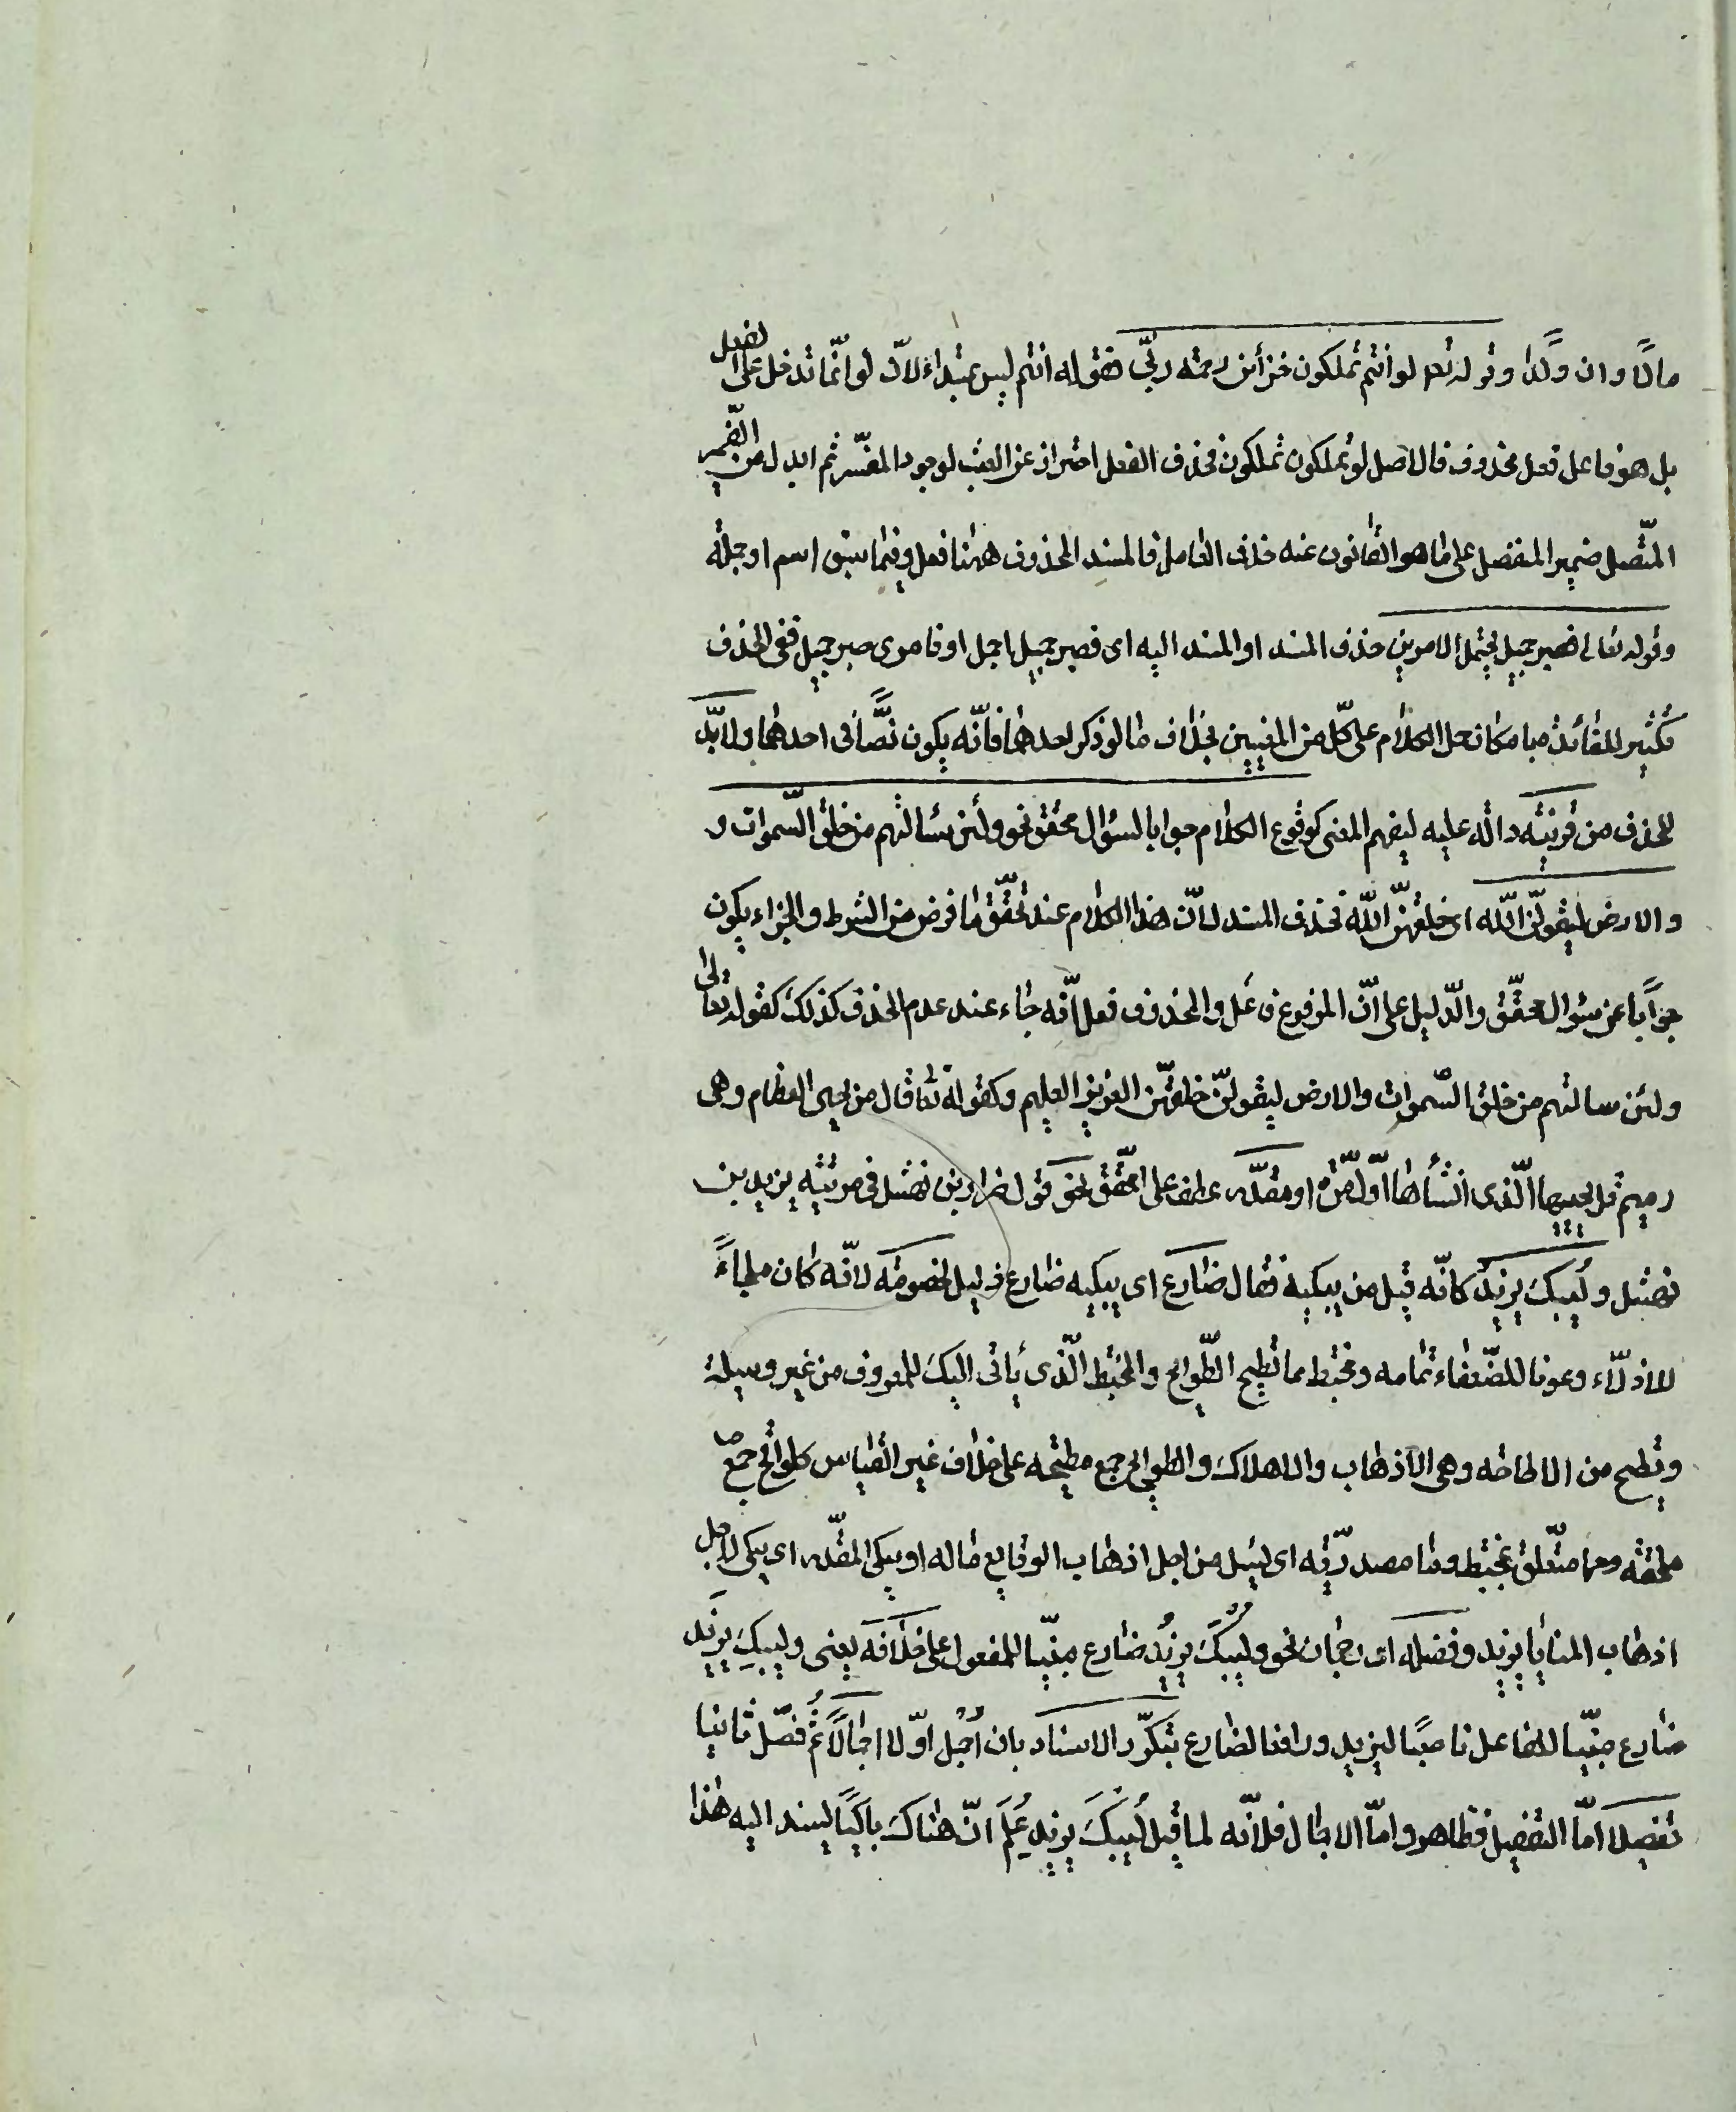 مالًا وان ولدًا وقوله تعم لو انتم تملكون خزائن رحمة ربّى فقوله انتم ليس بمبتداء لانّ لو انّما تدخل على الفعل
بل هو فاعل فعل محذوف فالاصل لو تملكون تملكون فحذف الفعل احتراز عن العبث لوجود المفسّر ثم ابدل من الضّمير
المتّصل ضمير المنفصل على ما هو القانون عنه حذف العامل فالمسند المحذوف ههنا فعل وفيما سبق اسم او جملة
وقوله تعالى فصبر جميل يحتمل الامرين حذف المسند او المسند اليه اى فصبر جميل اجمل او فامرى صبر جميل ففى الحذف
تكثير للفائدة مبا مكان حمل الكلام على كلّ من المعنيين بخلاف ما لو ذكر احدهما فانّه يكون نصًّا فى احدهما ولا بدّ
للحذف من قرينة دالّة عليه ليفهم المعنى كوقوع الكلام جوابا لسؤال محقق نحو ولئن سئالتهم من خلق السّموات و
والارض ليقولنّ اللّه اى خلقهنّ اللّه فحذف المسند لانّ هذا الكلام عند تحقّق ما فرض من الشرط والجزاء يكون
جوابًا عن سؤال محقّق والدّليل على انّ المرفوع فاعل والمحذوف فعل انّه جاء عند عدم الحذف كذلك كقوله تعالى
ولئن سالتهم من خلق السّموات والارض ليقولنّ خلقهنّ العزيز العليم وكقوله تعا قال من يحيى العظام وهى
رميم قل يحييها الّذى انشأها اوّل مرّة او مقدّر عطف على محقّق نحو قول ضرار بن نهشل فى مرثية يزيد بن
نهشل وليبك يزيد كانّه قيل من يبكيه فقال ضارع اى يبكيه ضارع ذليل لخصومة لانّه كان ملجاءً
للاذلّاء وعونا للضّعفاء تمامه ومختبط مما تطيح الطّوايح والمختبط الّذى يأتى اليك للمعروف من غير وسيلة
وتطيح من الاطاحة وهى الاذهاب والاهلاك والطوايح جمع مطيحه على خلاف غير القياس كلواقح جمع
ملقحة ومما متعلق بمختبط وما مصدريّة اى ليئل من اجل اذهاب الوقايع ماله او يبكى المقدّر اى يبكى لاجل
اذهاب المنايا يزيد وفضله اى رجحان نحو وليبك يزيد ضارع مبنيّا للمفعول على خلافه يعنى وليبك يزيد
ضارع مبنيّا للفاعل ناصبًا ليزيد ورافعا لضارع بتكرّر الاسناد بان اجمل اوّلا اجمالًا ثم فصّل ثانيا
تفصيلا امّا التفصيل فظاهر وامّا الاجمال فلانّه لما قيل ليبك يزيد علم انّ هناك باكيًا ليسند اليه هذا